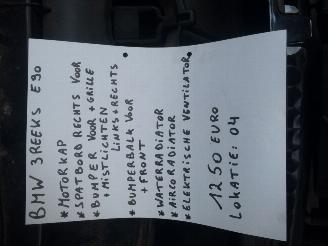 BMW 3REEKS E90
* MOTORKAP
* SPATBORD RECHTS VOOR
* BUMPER VOOR + GRILLE
+ MISTLICHTEN
LINKS + RECHTS
* BUMPERBALK VOOR
+ FRONT
* WATERRADIATOR
* AIRCO RADIATOR
* ELEKTRISCHE VENTILATOR
1250 EURO
LOKATIE: 04